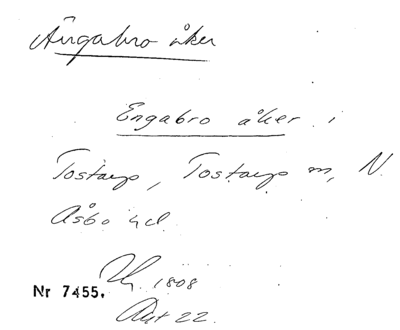 Ängabro åker
Engabro åker i
Tostarp, Tostarp sn, N
Åsbo hd.
1808
Nr 7455.
Akt 22.